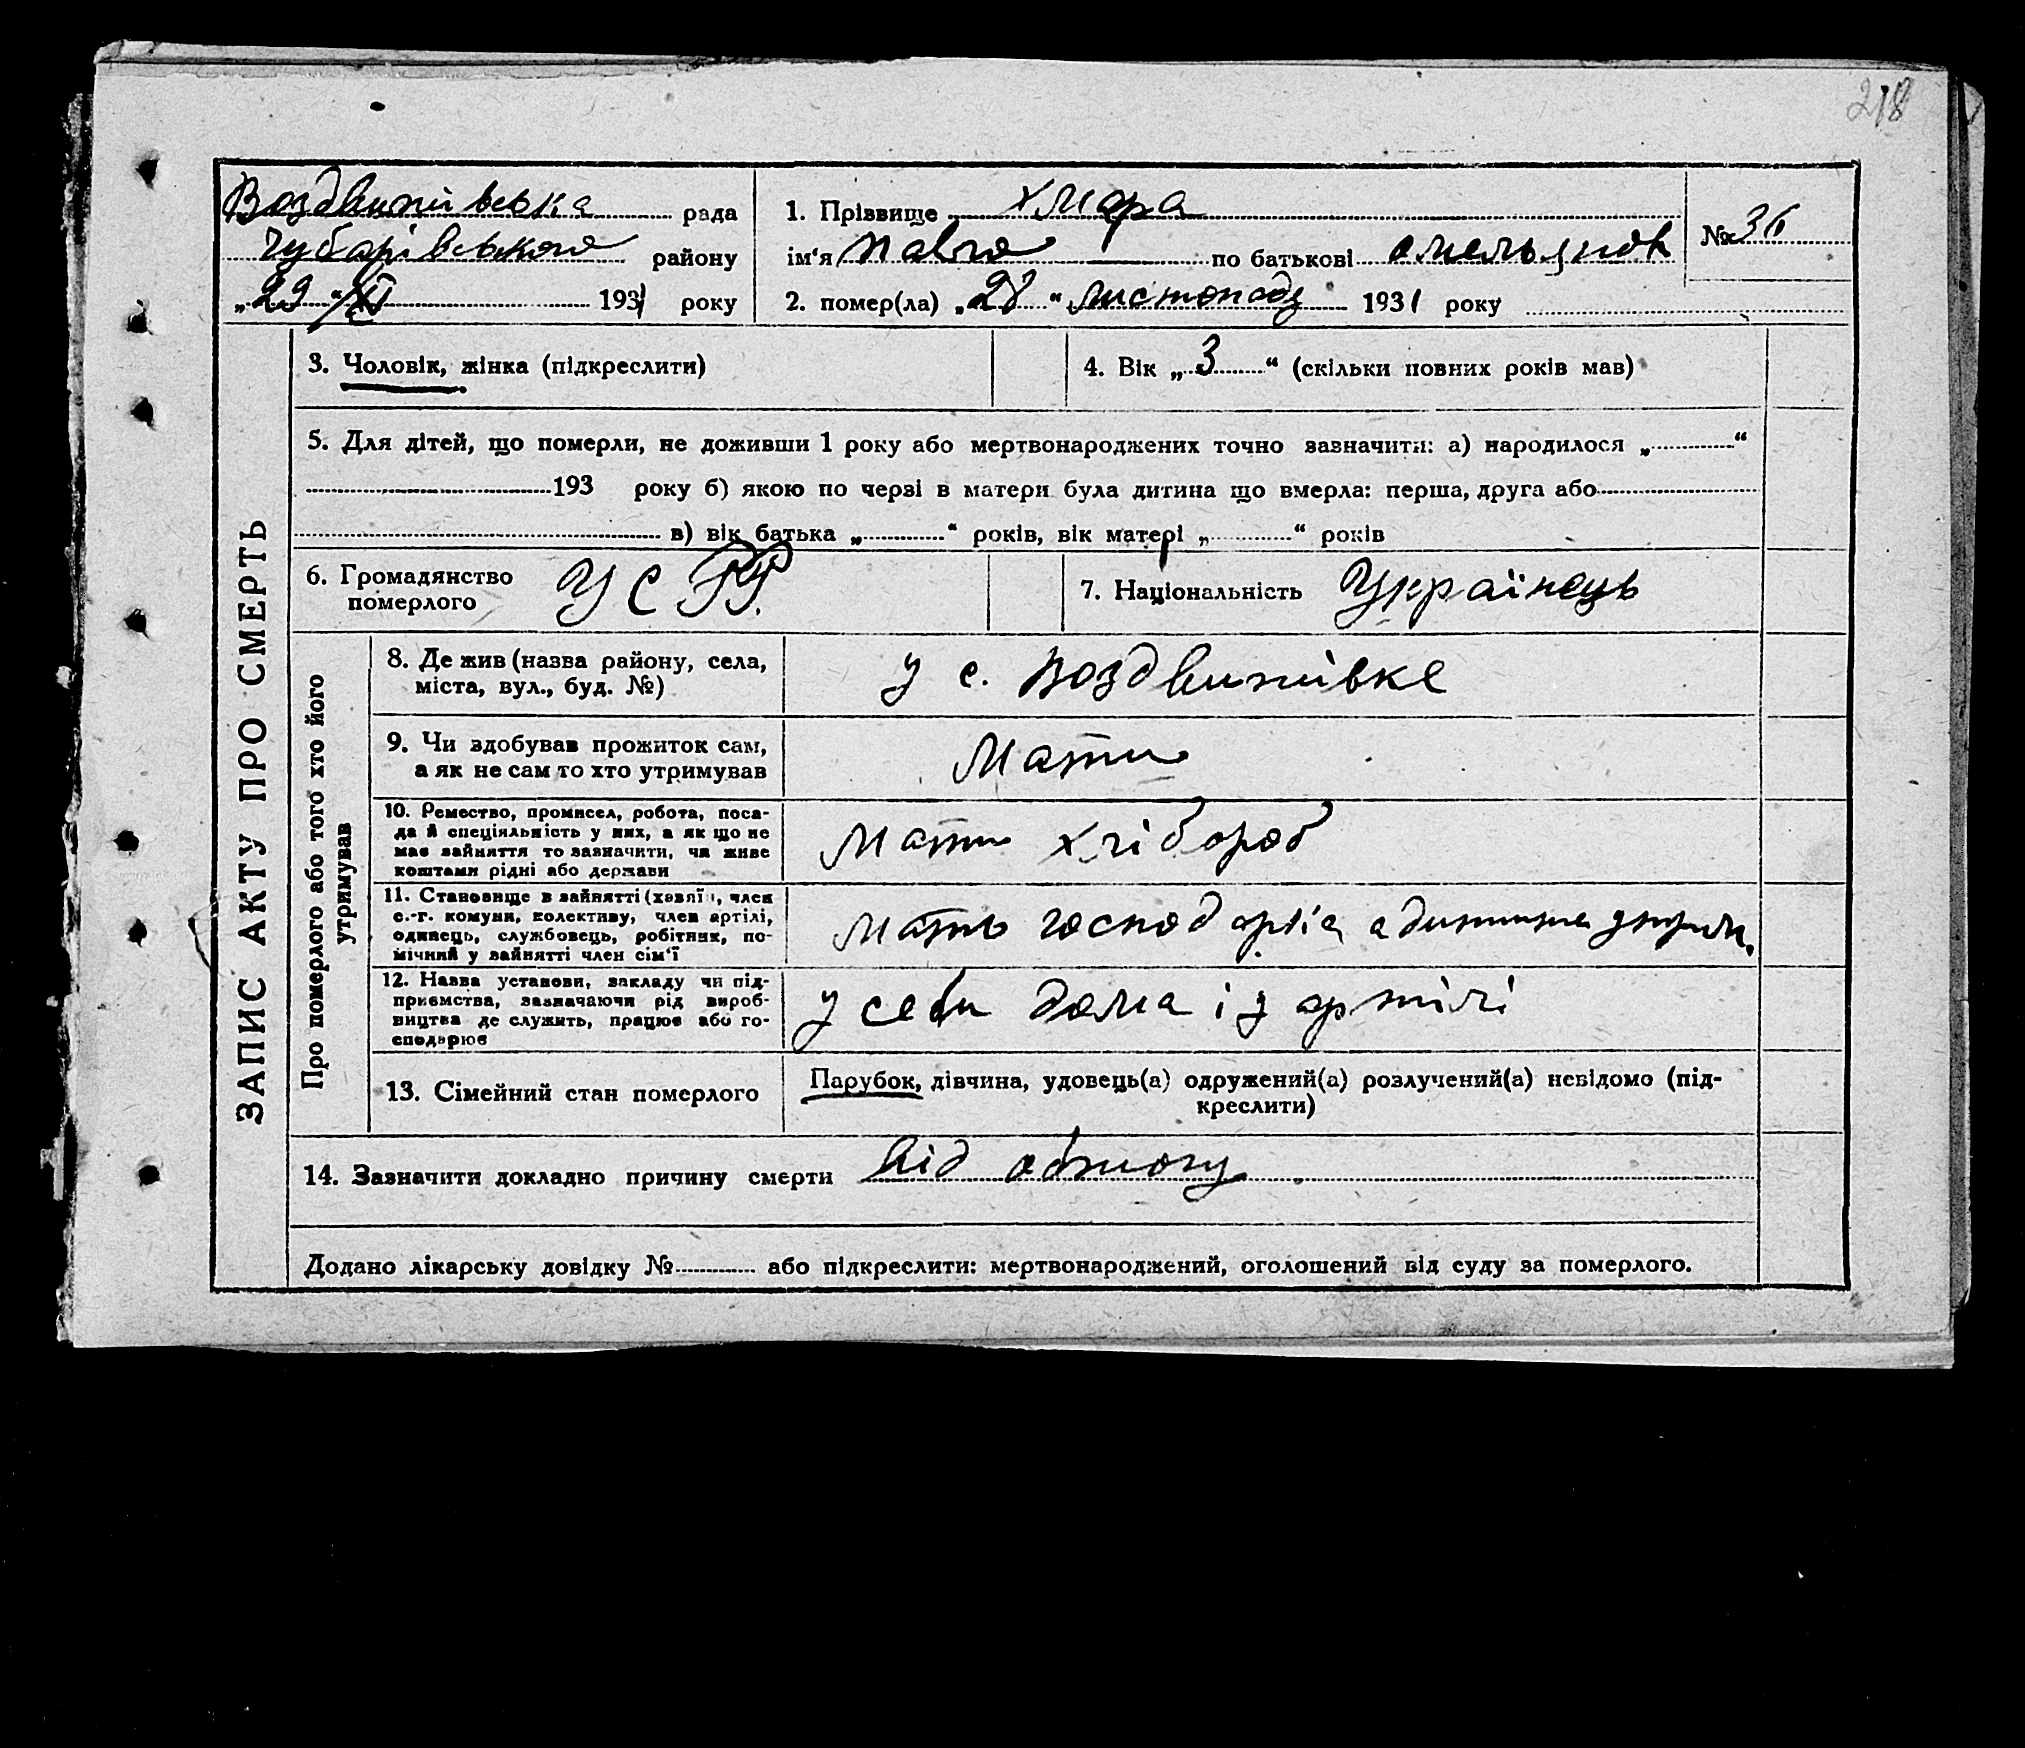 218
Воздвижівська рада
Чубарівського району
„29 “ XI 1931 року
1. Прізвище Хмара
ім‘я Павло по батькові Омельянов
2. помер(ла) „28 “ листопада 1931 року
№ 36
ЗАПИС АКТУ ПРО СМЕРТЬ
3. Чоловік, жінка (підкреслити)
4. Вік „ 3 “ (скільки повних років мав)
5. Для дітей, що померли, не доживши 1 року або мертвонароджених точно зазначити: а) народилося „ “
193 року б) якою по черзі в матери була дитина що вмерла: перша, друга або
в) вік батька „ “ років, вік матері „ “ років
6. Громадянство
померлого
УСРР
7. Національність Українець
Про померлого або того хто його
утримував
8. Де жив (назва району, села,
міста, вул., буд. №)
у с. Воздвижівке
9. Чи здобував прожиток сам,
а як не сам то хто утримував
Мати
10. Ремество, промисел, робота, поса-
да й спеціяльність у них, а як що не
має зайняття то зазначити, чи живе
коштами рідні або держави
Мати хлібороб
11. Становище в зайнятті (хазяїн, член
с.-г. комуни, колективу, член артілі,
одинець, службовець, робітник, по-
мічний у зайнятті член сім‘ї
Мать господарка, а дитина утрим.
12. Назва установи, закладу чи під-
приємства, зазначаючи рід вироб-
ництва де служить, працює або го-
сподарює
у себи дома і у артілі
13. Сімейний стан померлого
Парубок, дівчина, удовець(а) одружений(а) розлучений(а) невідомо (під-
креслити)
14. Зазначити докладно причину смерти від обжогу
Додано лікарську довідку № або підкреслити: мертвонароджений, оголошений від суду за померлого.